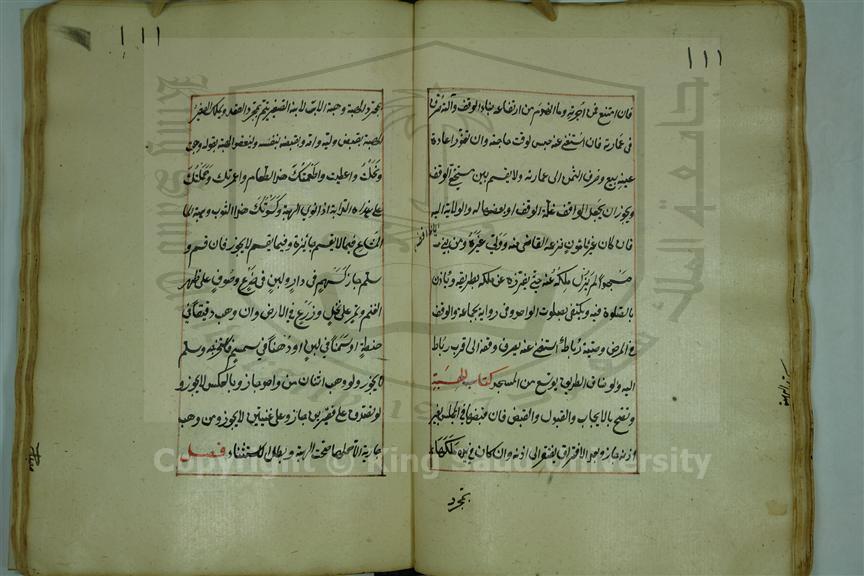 ١١١
فان امتنع عن اجرته وما انهدم من ارتفاعه بناء الوقف وآلته صرف
فى عمارته فان استغنى عنه حبس لوقت حاجته وان تعذر اعادة
عينه بيع وصرف الثمن الى عمارته ولا يقسم بين مستحقى الوقف
ويجوز ان يجعل الواقف غلة الوقف او بعضها له والولاية اليه
فان كان غير مأمون نزعه القاضى منه وولى غيره ومن بنى
مسجدا لم يزل ملكه عنه حتى يفرزه عن ملكه بطريقه وياذن
بالصلوة فيه ويكتفى بصلوت الواحد فى رواية بجماعة والوقف
فى المرض وصية رباط استغنى عنه يصرف وقفه الى اقرب رباط
اليه ولو ضاق الطريق يوسع من المسجد كتاب الهبة
وتصح بالايجاب والقبول والقبض فان قبضها فى المجلس بغير
اذنه جاز وبعد الافتراق يفتقر الى اذنه وان كان فى يده ملكها
بمجرد
١١١
بمجرد الهبة وهبة الاب لابنه الصغير يتم بمجرد العقد ويملك الصغير
الهبة بقبض وليه وامه وبقبضه بنفسه وتنعقد الهبة بقوله وهبت
ونحلت واعطيت واطعمتك هذا الطعام واعمرتك وحملتك
على هذه الدابة اذا نوى الهبة وكسوتك هذا الثوب وهبة المـ
الشاع فيما لا يقسم جائزة وفيما يقسم لا يجوز فان قسم و
سلم جاز كسهم فى دار ولبن فى ضرع وصوف على ظهر
الغنم وتمر على نخل وزرع فى الارض وان وهب دقيقا فى
حنطة او سمنا فى لبن او دهنا فى سمسم وسلم
لا يجوز ولو وهب اثنان من واحد جاز وبالعكس لا يجوز و
لو تصدق على فقيرين جاز وعلى غنيين لا يجوز ومن وهب
جارية الا حملها صحت الهبة وبطل الاستثناء فصل
Copyright © King Saud University
جامعة الملك سعود
King Saud University
1957